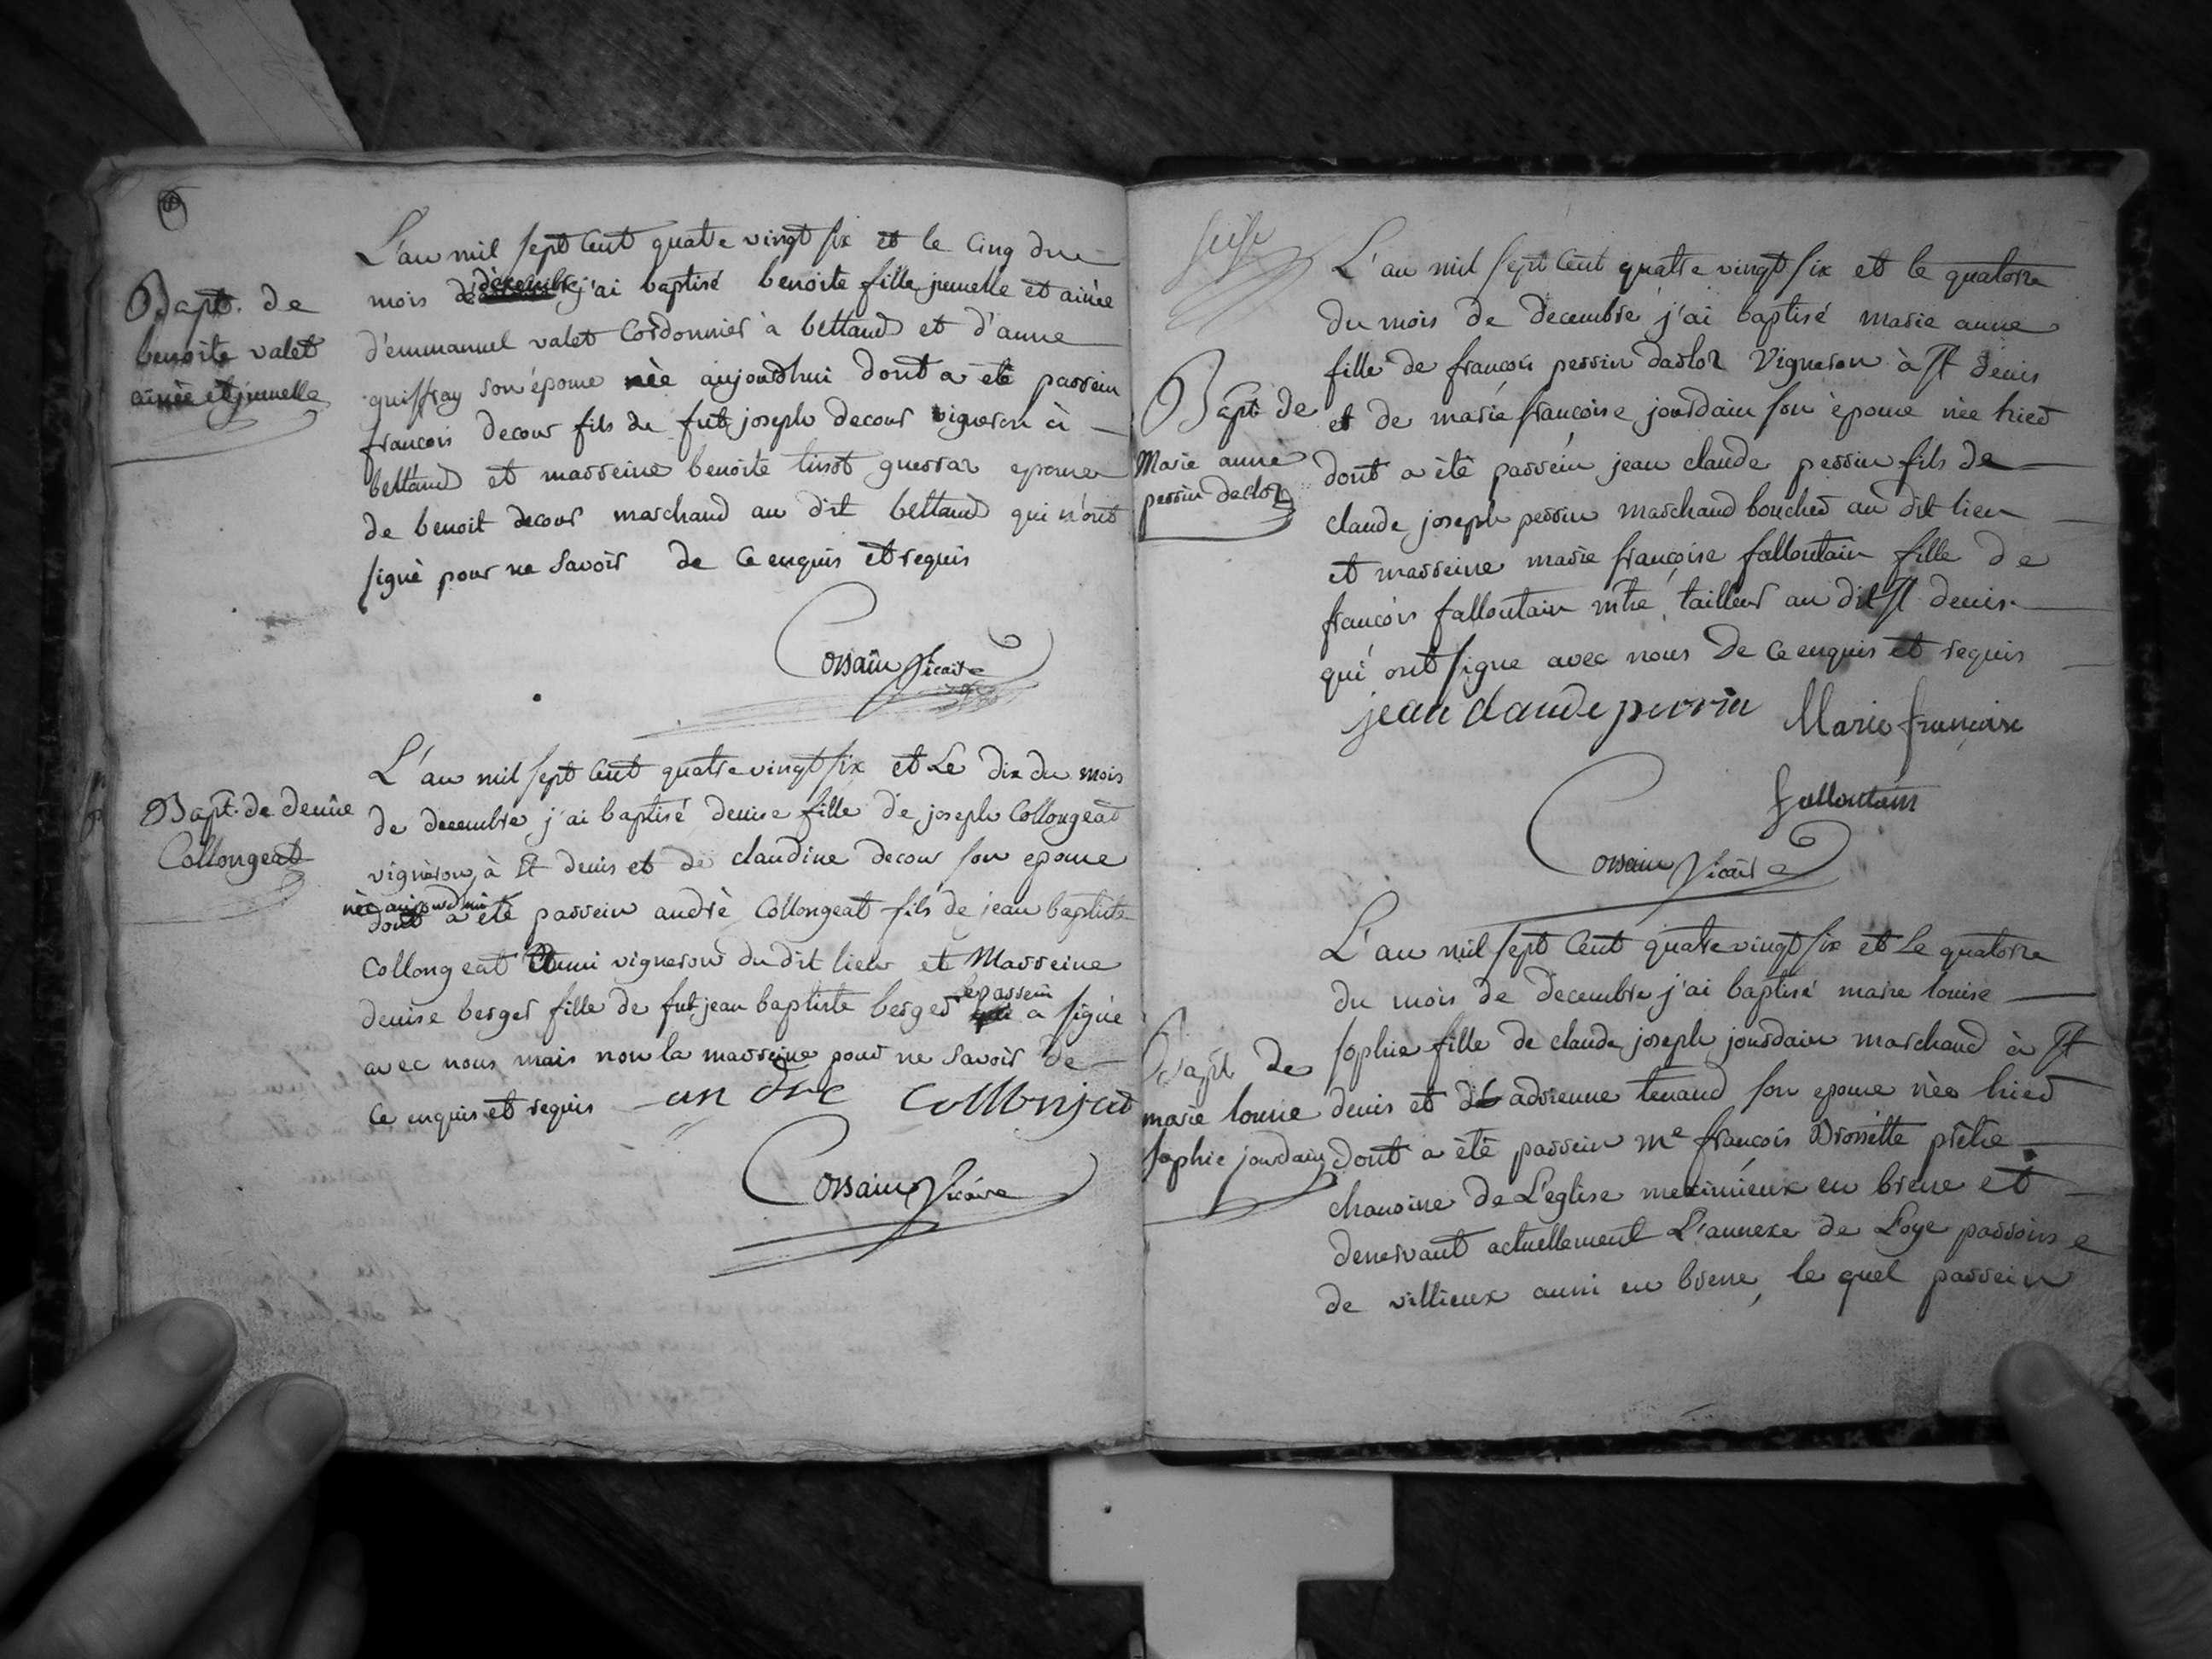 L'an mil sept cent quatre vingt six et le cinq du
mois decembre j'ai baptisé benoite fille jumelle et ainée
Bapt. de
benoite valet
ainée et jumelle
d'emmanuel valet Cordonnier à bettand et d'anne
guiffray son épouse née aujourdhui dont a été parrein
francois decour fils de fut joseph decour vigneron à
bettand et marreine benoite tinot guerraz epouse
de benoit decour marchand au dit bettand qui n'ont
signé pour ne savoir de ce enquis et requis
Corsain Vicaire
L'an mil sept cent quatre vingt six et Le dix du mois
Bapt. de denise
Collongeat
de decembre j'ai baptisé denise fille de joseph Collongeat
vigneron à St denis et de claudine decour son epouse
née aujourdhui
dont a été parrein andré Collongeat fils de jean baptiste
Collongeat aussi vigneron du dit lieu et Marreine
denise berger fille de fut jean baptiste berger le parrein a signé
avec nous mais non la marreine pour ne savoir de
ce enquis et requis an dre Collonjat
Corsain Vicaire
L'an mil sept cent quatre vingt six et le quatorze
du mois de decembre j'ai baptisé marie anne
fille de francois perrin darloz Vigneron à St denis
Bapt de
Marie anne
perrin darloz
et de marie francoise jourdain son épouse née hier
dont a été parrein jean claude perrin fils de
claude joseph perrin marchand boucher au dit lieu
et marreine marie françoise falloutain fille de
françois falloutain mtre tailleur au dit St denis
qui ont signe avec nous de ce enquis et requis
jean claude perrin Marie françoise
falloutain
Corsain Vicaire
L'an mil sept cent quatre vingt six et le quatorze
du mois de decembre j'ai baptisé marie louise
Bapt de
marie louise
sophie jourdain
sophie fille de claude joseph jourdain marchand à St
denis et de adrienne tenand son epouse née hier
dont a été parrein me francois Brossette prêtre
chanoine de L'eglise meximieux en bresse et
desservant actuellement L'annexe de Loye parroisse
de villieux aussi en bresse, le quel parrein